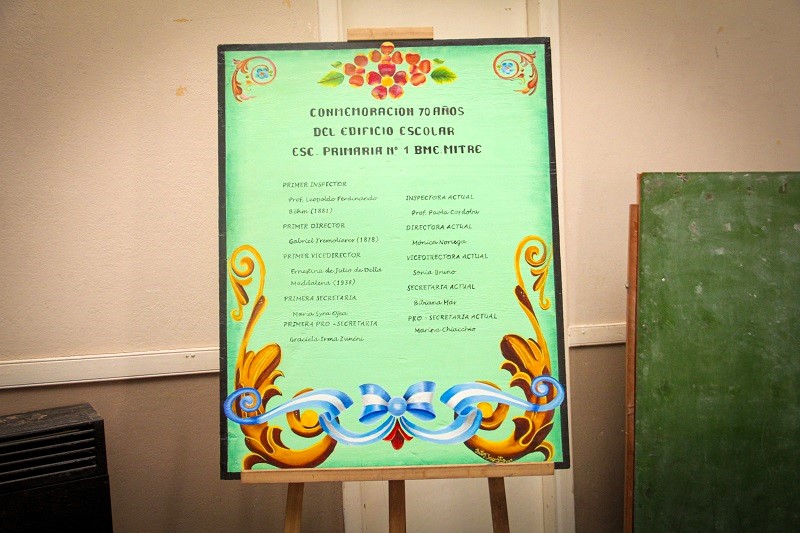 CONMEMORACION 70 AÑOS
DEL EDIFICIO ESCOLAR
ESC. PRIMARIA N° 1 BME MITRE
PRIMER INSPECTOR
Prof. Leopoldo Ferdinando
Böhm (1881)
PRIMER DIRECTOR
Gabriel Tremolieres (1878)
PRIMER VICEDIRECTOR
Ernestina de Julio de Della
Maddalena (1938)
PRIMERA SECRETARIA
Maria Lyra Ojea
PRIMERA PRO - SECRETARIA
Graciela Irma Zunini
INSPECTORA ACTUAL
Prof. Paola Cordoba
DIRECTORA ACTUAL
Mónica Noriega
VICEDIRECTORA ACTUAL
Sonia Bruno
SECRETARIA ACTUAL
Bibiana Mar
PRO - SECRETARIA ACTUAL
Marina Chiacchio